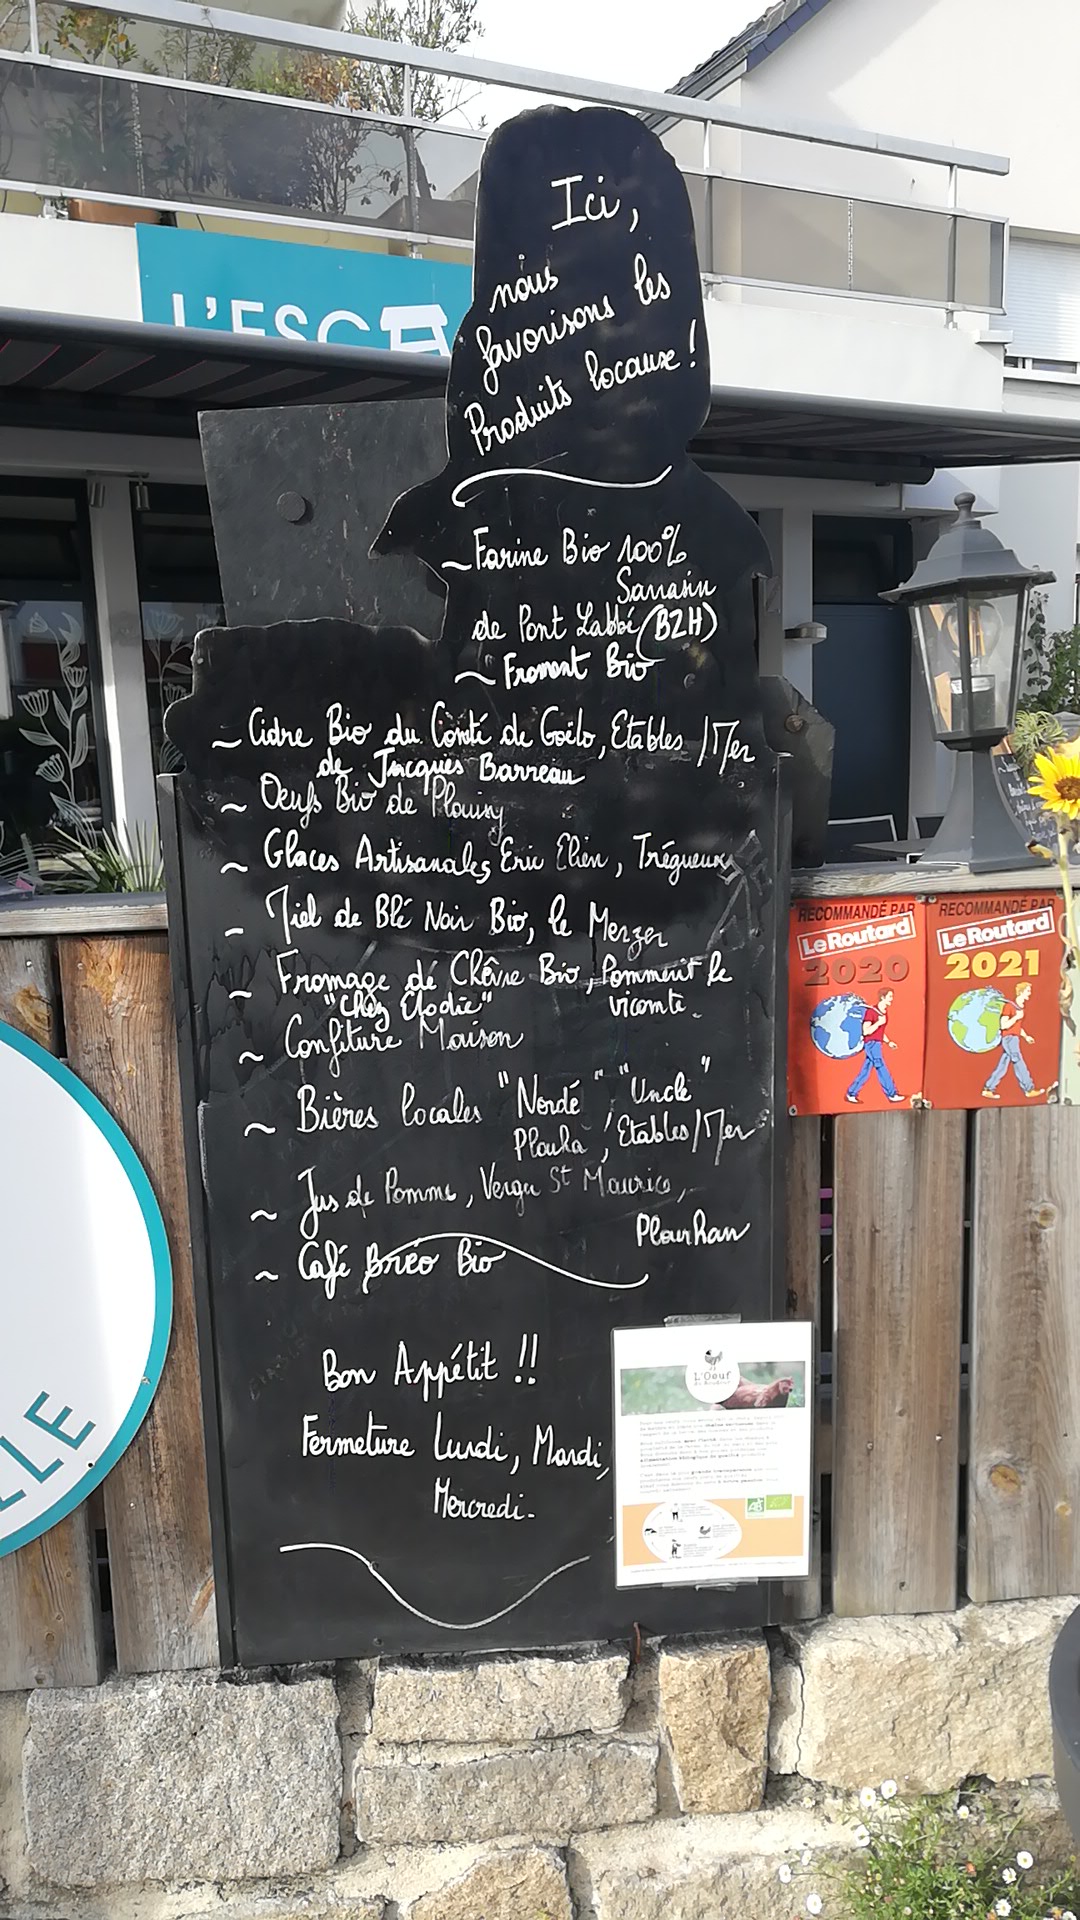 L'ESC
Ici,
nous
favorisons les
Produits locaux !
~ Farine Bio 100%
Sarrasin
de Pont Labbé (BZH)
~ Froment Bio
~ Cidre Bio du Comté de Goëlo, Etables / Mer
de Jacques Barreau
~ Oeufs Bio de Plouisy
~ Glaces Artisanales Eric Elien, Trégueux
~ Miel de Blé Noir Bio, le Merzer
~ Fromage de Chêvre Bio, Pommerit le
"Chez Elodie" vicomte.
~ Confiture Maison
~ Bières locales "Nordé", "Uncle"
Plouha, Etables/Mer
~ Jus de Pomme, Verger St Maurice,
Plourhan
~ Café Bréo Bio
Bon Appétit !!
Fermeture Lundi, Mardi,
Mercredi.
RECOMMANDÉ PAR
Le Routard
2020
RECOMMANDÉ PAR
Le Routard
2021
L'Oeuf
AB
LLE